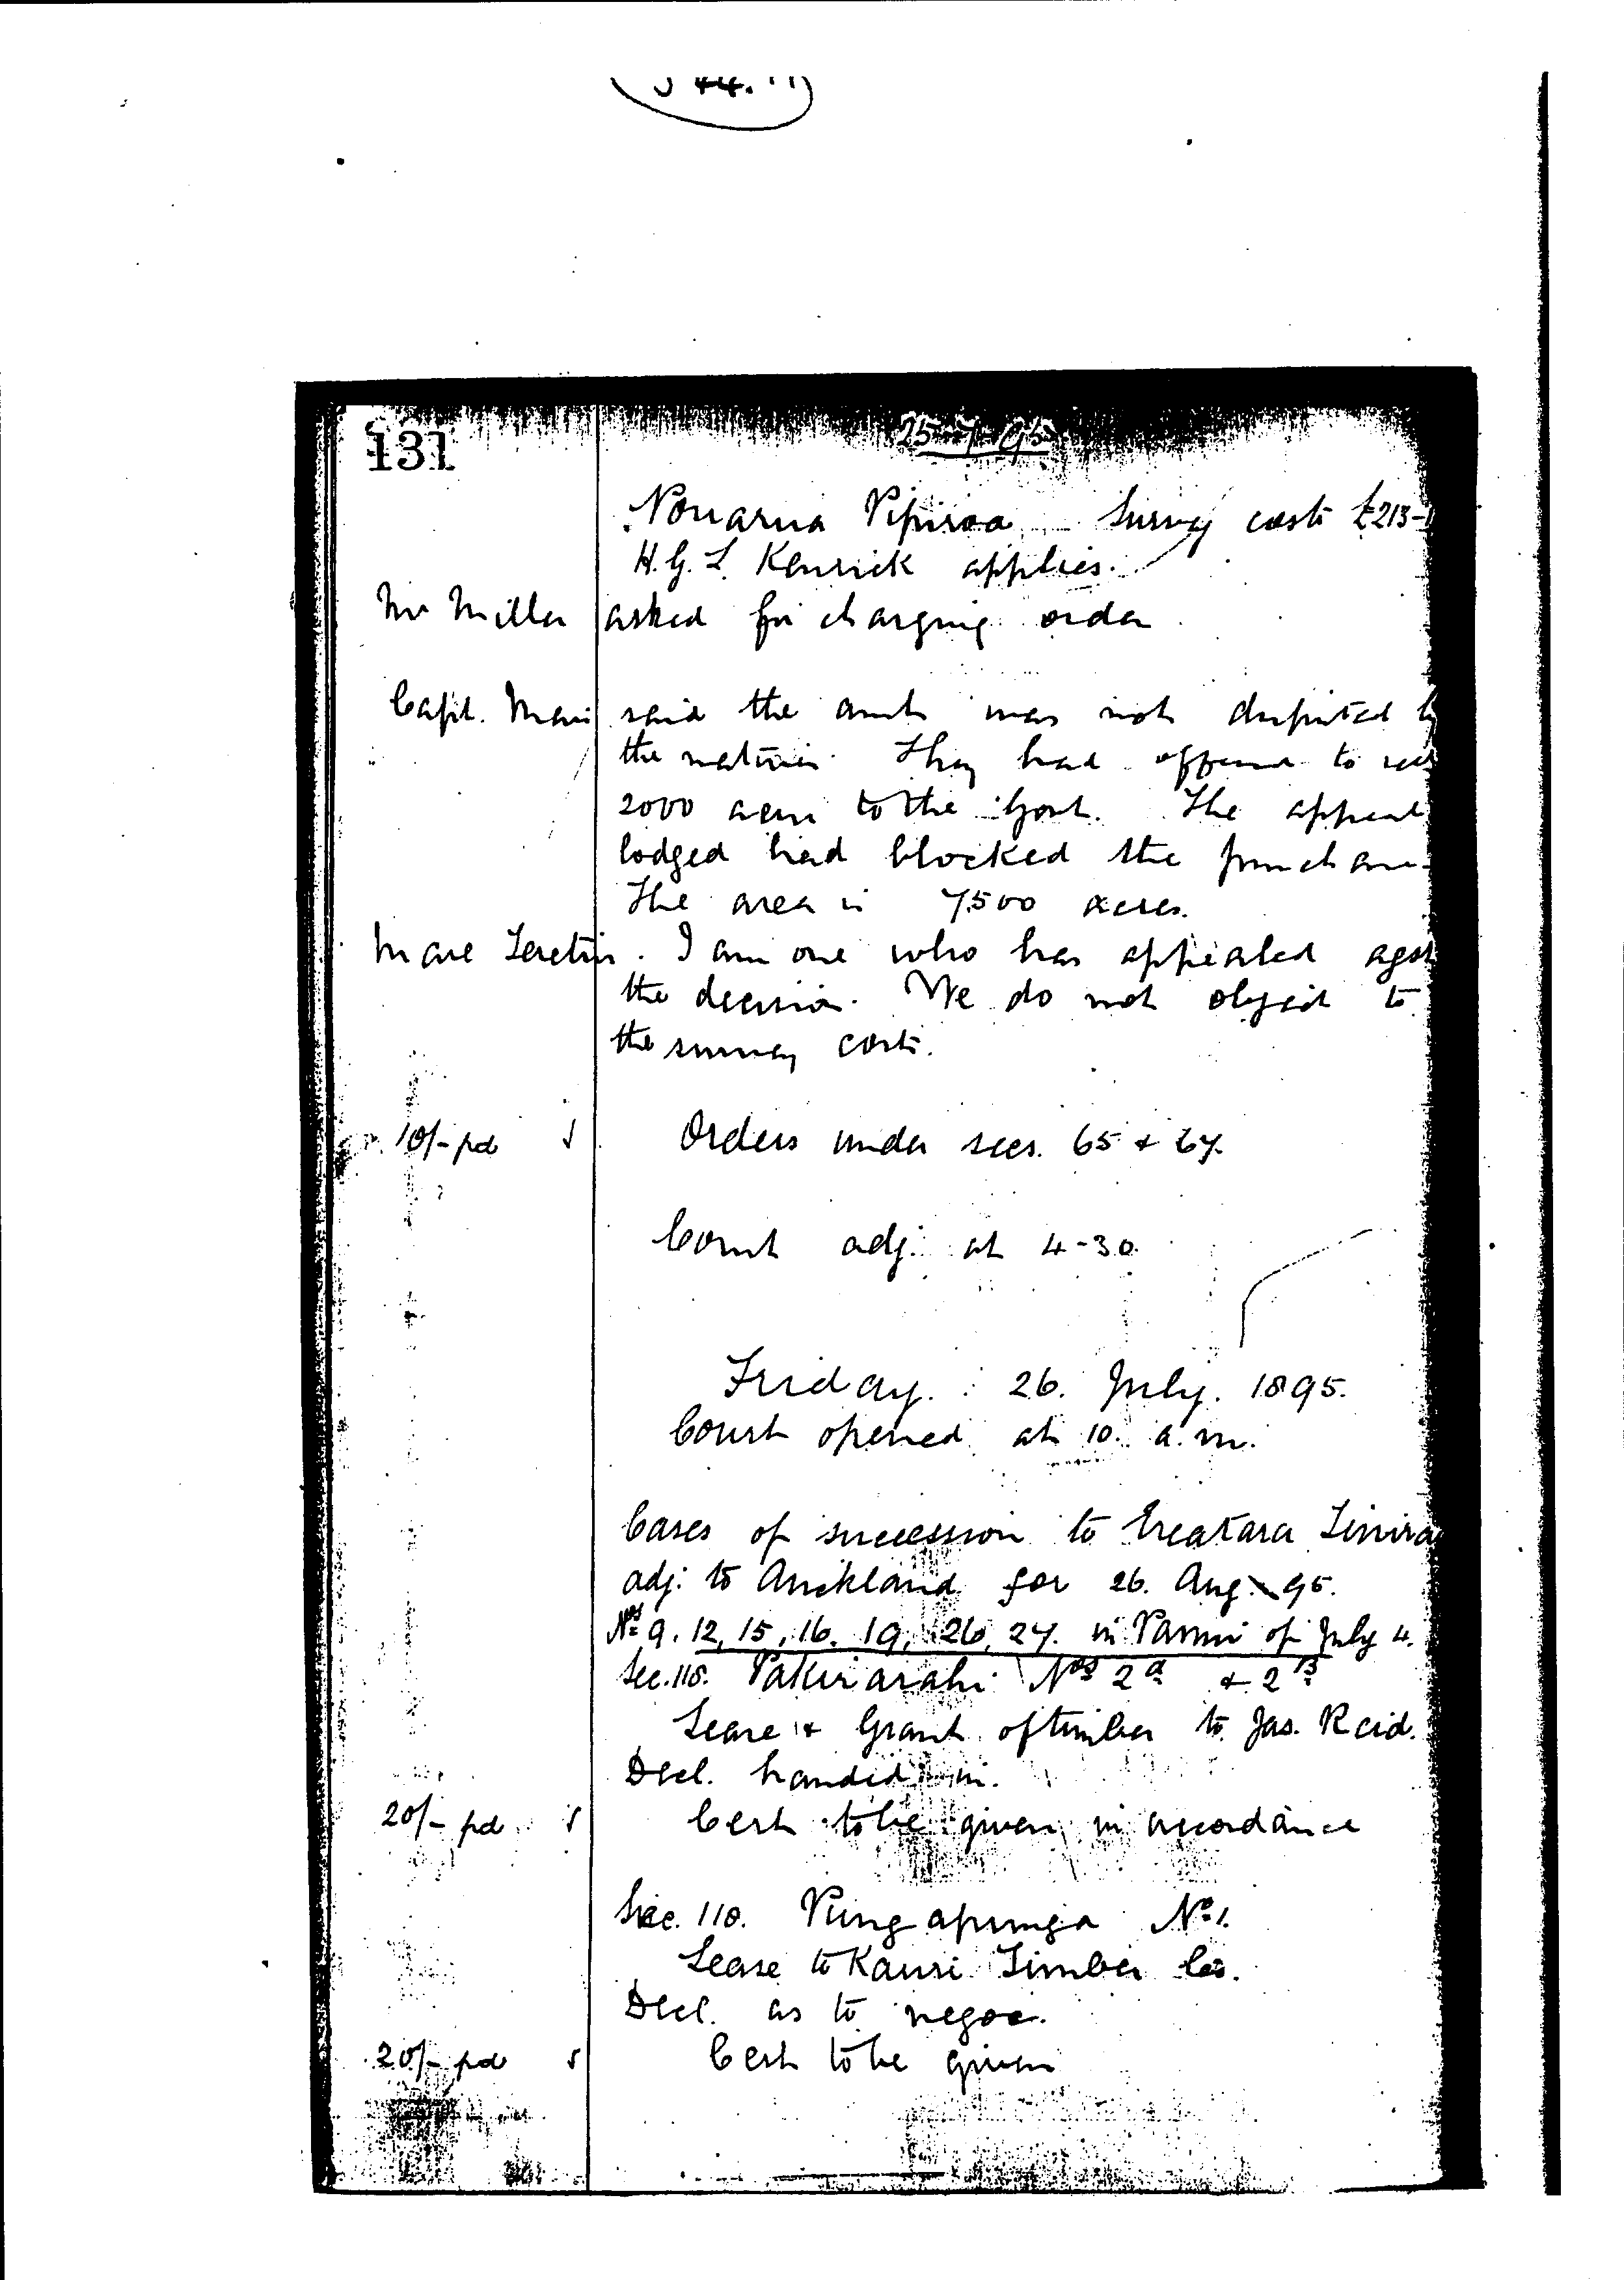 131
25-7-95
Nouarua Pipiroa Survey costs £213-
H.G.L. Kenrick applies.
Mr Miller asked for charging order
Capt. Mair said the amt was not disputed by
the natives. They had offered to
2000 acres to the Govt. The appeal
lodged had blocked the purchase.
The area is 7500 acres.
Mare Teretiu. I am one who has appealed agst
the decision. We do not object to
the survey costs.
10/- pd Orders under secs. 65 & 67.
Court adj. at 4-30.
Friday. 26. July. 1895.
Court opened at 10. a.m.
Cases of succession to Ereatara
adj. to Auckland for 26. Aug. 95.
Nos 9. 12, 15, 16. 19, 26, 27. in Panui of July 4.
Sec. 118. Pakirarahi Nos 2a & 2B
Lease & Grant of timber to Jas. Reid.
Decl. handed in.
20/- pd Cert to be given in accordance
Sec. 118. Pungapunga No 1.
Lease to Kauri Timber Co.
Decl. as to negoc.
20/- pd Cert to be given